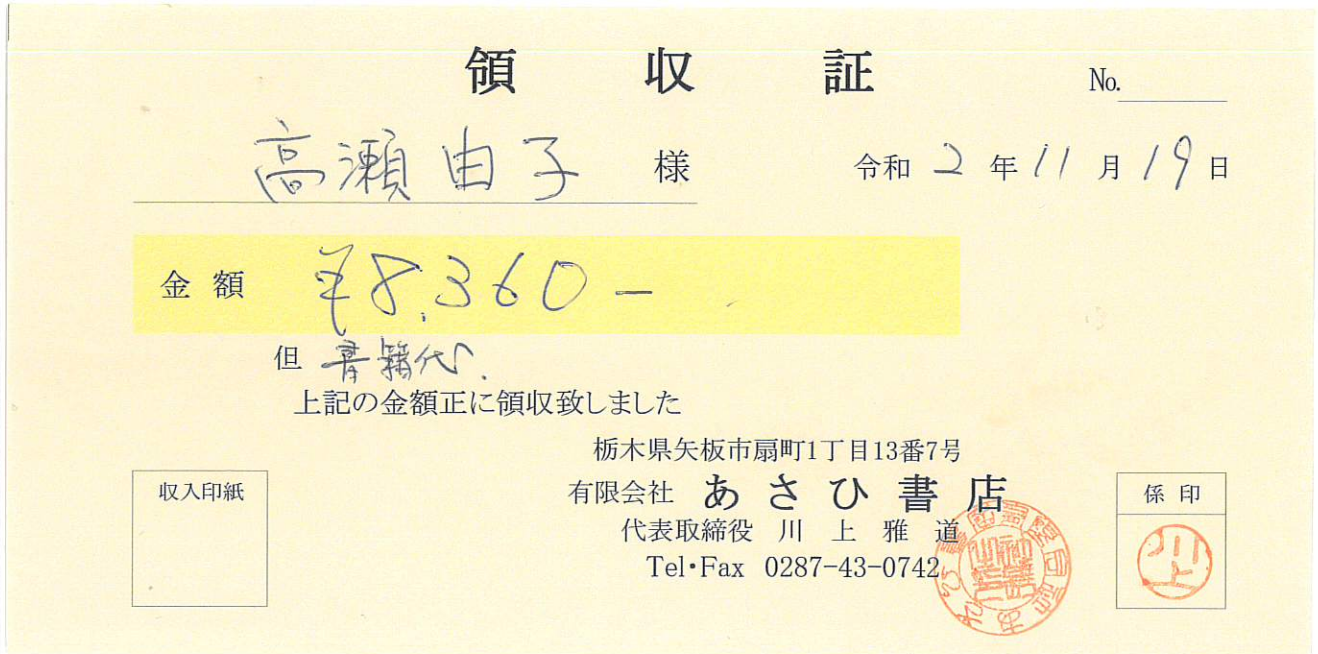 領収証 No.
高瀬由子 様 令和 2 年 11 月 19 日
金額 ¥8,360-
但 書籍代
上記の金額正に領収致しました
栃木県矢板市扇町1丁目13番7号
収入印紙 有限会社 あさひ書店 係印
代表取締役 川上雅道
Tel・Fax 0287-43-0742
川上